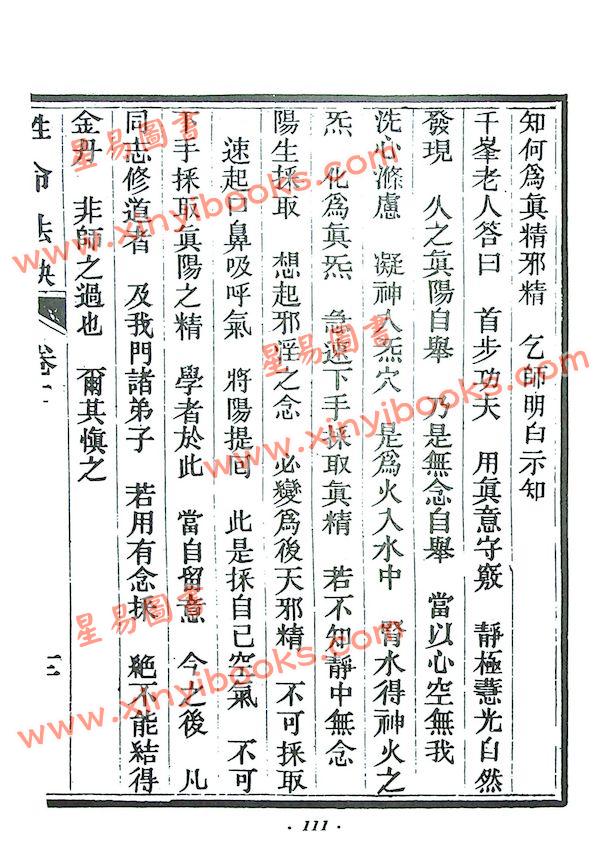 知何爲眞精邪精　乞師明白示知
千峯老人答曰　首步功夫　用眞意守竅　靜極慧光自然
發現　人之眞陽自舉　乃是無念自舉　當以心空無我
洗心滌慮　凝神入炁穴　是爲火入水中　腎水得神火之
炁　化爲眞炁　急速下手採取眞精　若不知靜中無念
陽生採取　想起邪淫之念　必變爲後天邪精　不可採取
速起口鼻吸呼氣　將陽提回　此是採自己空氣　不可
下手採取眞陽之精　學者於此　當自留意　今之後　凡
同志修道者　及我門諸弟子　若用有念採　絕不能結得
金丹　非師之過也　爾其愼之
性命法訣　卷
111
星易圖書
www.xinyibooks.com
星易圖書
www.xinyibooks.com
星易圖書
www.xinyibooks.com
星易圖書
www.xinyibooks.com